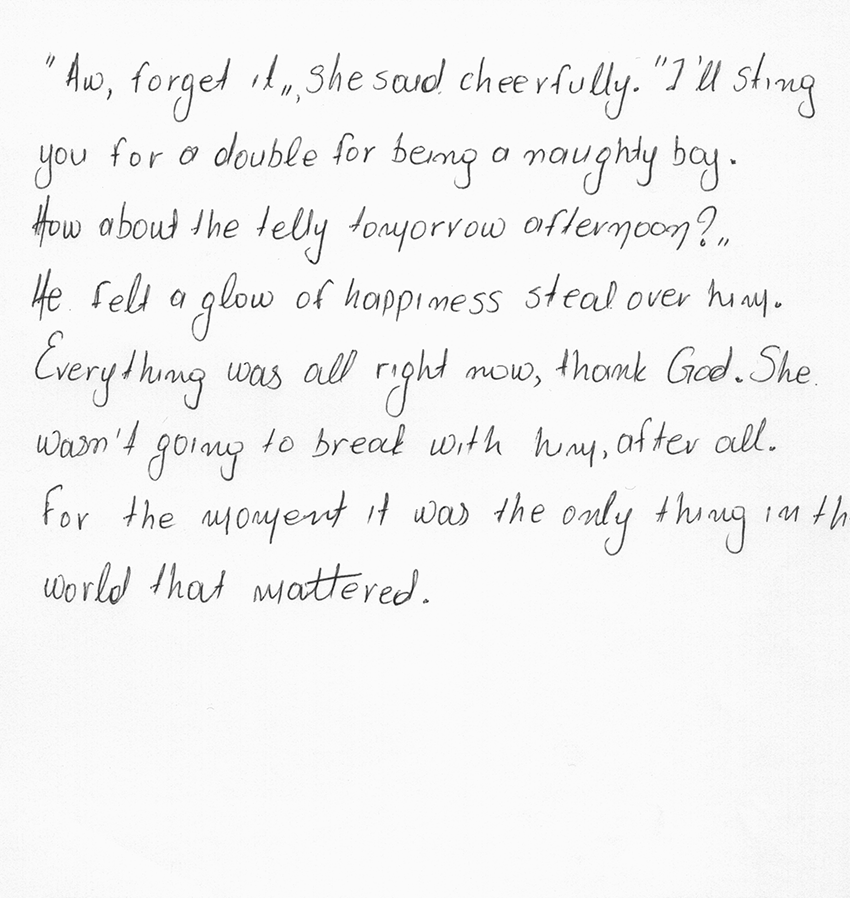 "Aw, forget it„, she said cheerfully. "I'll sting
you for a double for being a naughty boy.
How about the telly tomorrow afternoon?„
He felt a glow of happiness steal over him.
Everything was all right now, thank God. She
wasn't going to break with him, after all.
For the moment it was the only thing in th
world that mattered.